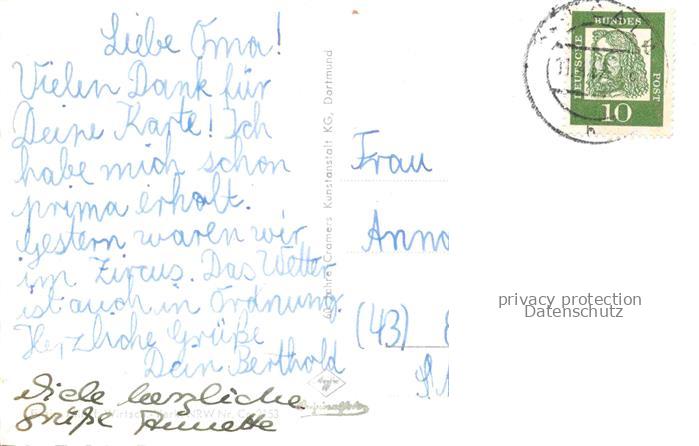 Liebe Oma!
Vielen Dank für
Deine Karte! Ich
habe mich schon
prima erholt.
Gestern waren wir
im Zircus. Das Wetter
ist auch in Ordnung.
Herzliche Grüße
Dein Berthold
Viele herzliche
Grüße Annette
Jahre Cramers Kunstanstalt KG, Dortmund
NRW Nr.
Frau
Anna
(43)
DEUTSCHE
BUNDES
POST
10
privacy protection
Datenschutz